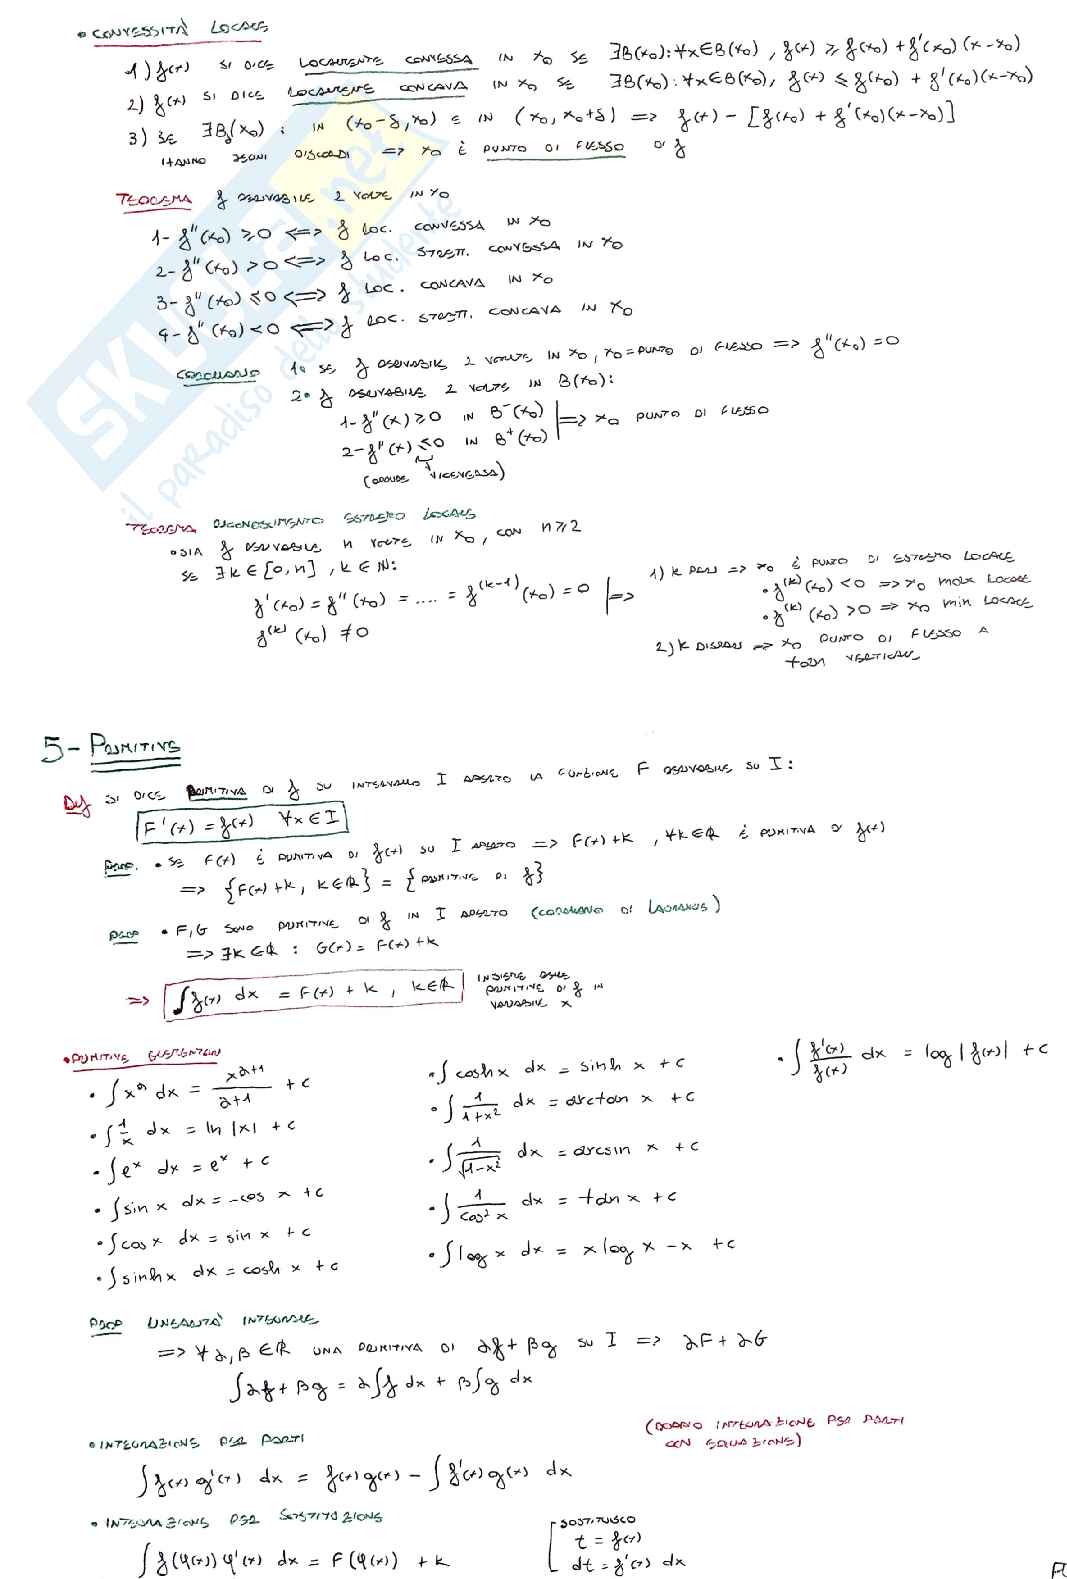 • CONVESSITÀ LOCALE
1) f(x) SI DICE LOCALMENTE CONVESSA IN x₀ SE ∃B(x₀): ∀x∈B(x₀), f(x) ≥ f(x₀) + f'(x₀)(x-x₀)
2) f(x) SI DICE LOCALMENTE CONCAVA IN x₀ SE ∃B(x₀): ∀x∈B(x₀), f(x) ≤ f(x₀) + f'(x₀)(x-x₀)
3) SE ∃B_δ(x₀): IN (x₀-δ, x₀) E IN (x₀, x₀+δ) => f(x) - [f(x₀) + f'(x₀)(x-x₀)]
HANNO SEGNI DISCORDI => x₀ È PUNTO DI FLESSO DI f
TEOREMA f DERIVABILE 2 VOLTE IN x₀
1- f''(x₀) ≥ 0 <=> f LOC. CONVESSA IN x₀
2- f''(x₀) > 0 <=> f LOC. STRETT. CONVESSA IN x₀
3- f''(x₀) ≤ 0 <=> f LOC. CONCAVA IN x₀
4- f''(x₀) < 0 <=> f LOC. STRETT. CONCAVA IN x₀
COROLLARIO 1• SE f DERIVABILE 2 VOLTE IN x₀, x₀ = PUNTO DI FLESSO => f''(x₀) = 0
2• f DERIVABILE 2 VOLTE IN B(x₀):
1- f''(x) ≥ 0 IN B⁻(x₀)
2- f''(x) ≤ 0 IN B⁺(x₀) => x₀ PUNTO DI FLESSO
(OPPURE VICEVERSA)
TEOREMA RICONOSCIMENTO ESTREMO LOCALE
• SIA f DERIVABILE n VOLTE IN x₀, CON n ≥ 2
SE ∃k ∈ [0, n], k ∈ ℕ:
f'(x₀) = f''(x₀) = .... = f^(k-1)(x₀) = 0
f^(k)(x₀) ≠ 0 =>
1) k PARI => x₀ È PUNTO DI ESTREMO LOCALE
• f^(k)(x₀) < 0 => x₀ max LOCALE
• f^(k)(x₀) > 0 => x₀ min LOCALE
2) k DISPARI => x₀ PUNTO DI FLESSO A
TAN VERTICALE
5 - PRIMITIVE
Def SI DICE PRIMITIVA DI f SU INTERVALLO I APERTO LA FUNZIONE F DERIVABILE SU I:
F'(x) = f(x) ∀x ∈ I
PROP. • SE F(x) È PRIMITIVA DI f(x) SU I APERTO => F(x)+k, ∀k∈ℝ È PRIMITIVA DI f(x)
=> {F(x)+k, k∈ℝ} = {PRIMITIVE DI f}
PROP • F, G SONO PRIMITIVE DI f IN I APERTO (COROLLARIO DI LAGRANGE)
=> ∃k∈ℝ : G(x) = F(x) + k
=> ∫f(x) dx = F(x) + k, k∈ℝ
INSIEME DELLE
PRIMITIVE DI f IN
VARIABILE x
• PRIMITIVE ELEMENTARI
• ∫xᵃ dx = xᵃ⁺¹/(a+1) + c
• ∫1/x dx = ln |x| + c
• ∫eˣ dx = eˣ + c
• ∫sin x dx = -cos x + c
• ∫cos x dx = sin x + c
• ∫sinh x dx = cosh x + c
• ∫cosh x dx = sinh x + c
• ∫1/(1+x²) dx = arctan x + c
• ∫1/√(1-x²) dx = arcsin x + c
• ∫1/cos² x dx = tan x + c
• ∫log x dx = x log x - x + c
• ∫f'(x)/f(x) dx = log |f(x)| + c
PROP LINEARITÀ INTEGRALE
=> ∀α, β ∈ ℝ UNA PRIMITIVA DI αf + βg SU I => αF + αG
∫αf + βg = α∫f dx + β∫g dx
• INTEGRAZIONE PER PARTI
(DOPPIO INTEGRAZIONE PER PARTI
CON EQUAZIONE)
∫f(x) g'(x) dx = f(x)g(x) - ∫f'(x)g(x) dx
• INTEGRAZIONE PER SOSTITUZIONE
∫f(φ(x)) φ'(x) dx = F(φ(x)) + k
SOSTITUISCO
t = f(x)
dt = f'(x) dx
SKUOLA.net
il paradiso dello studente